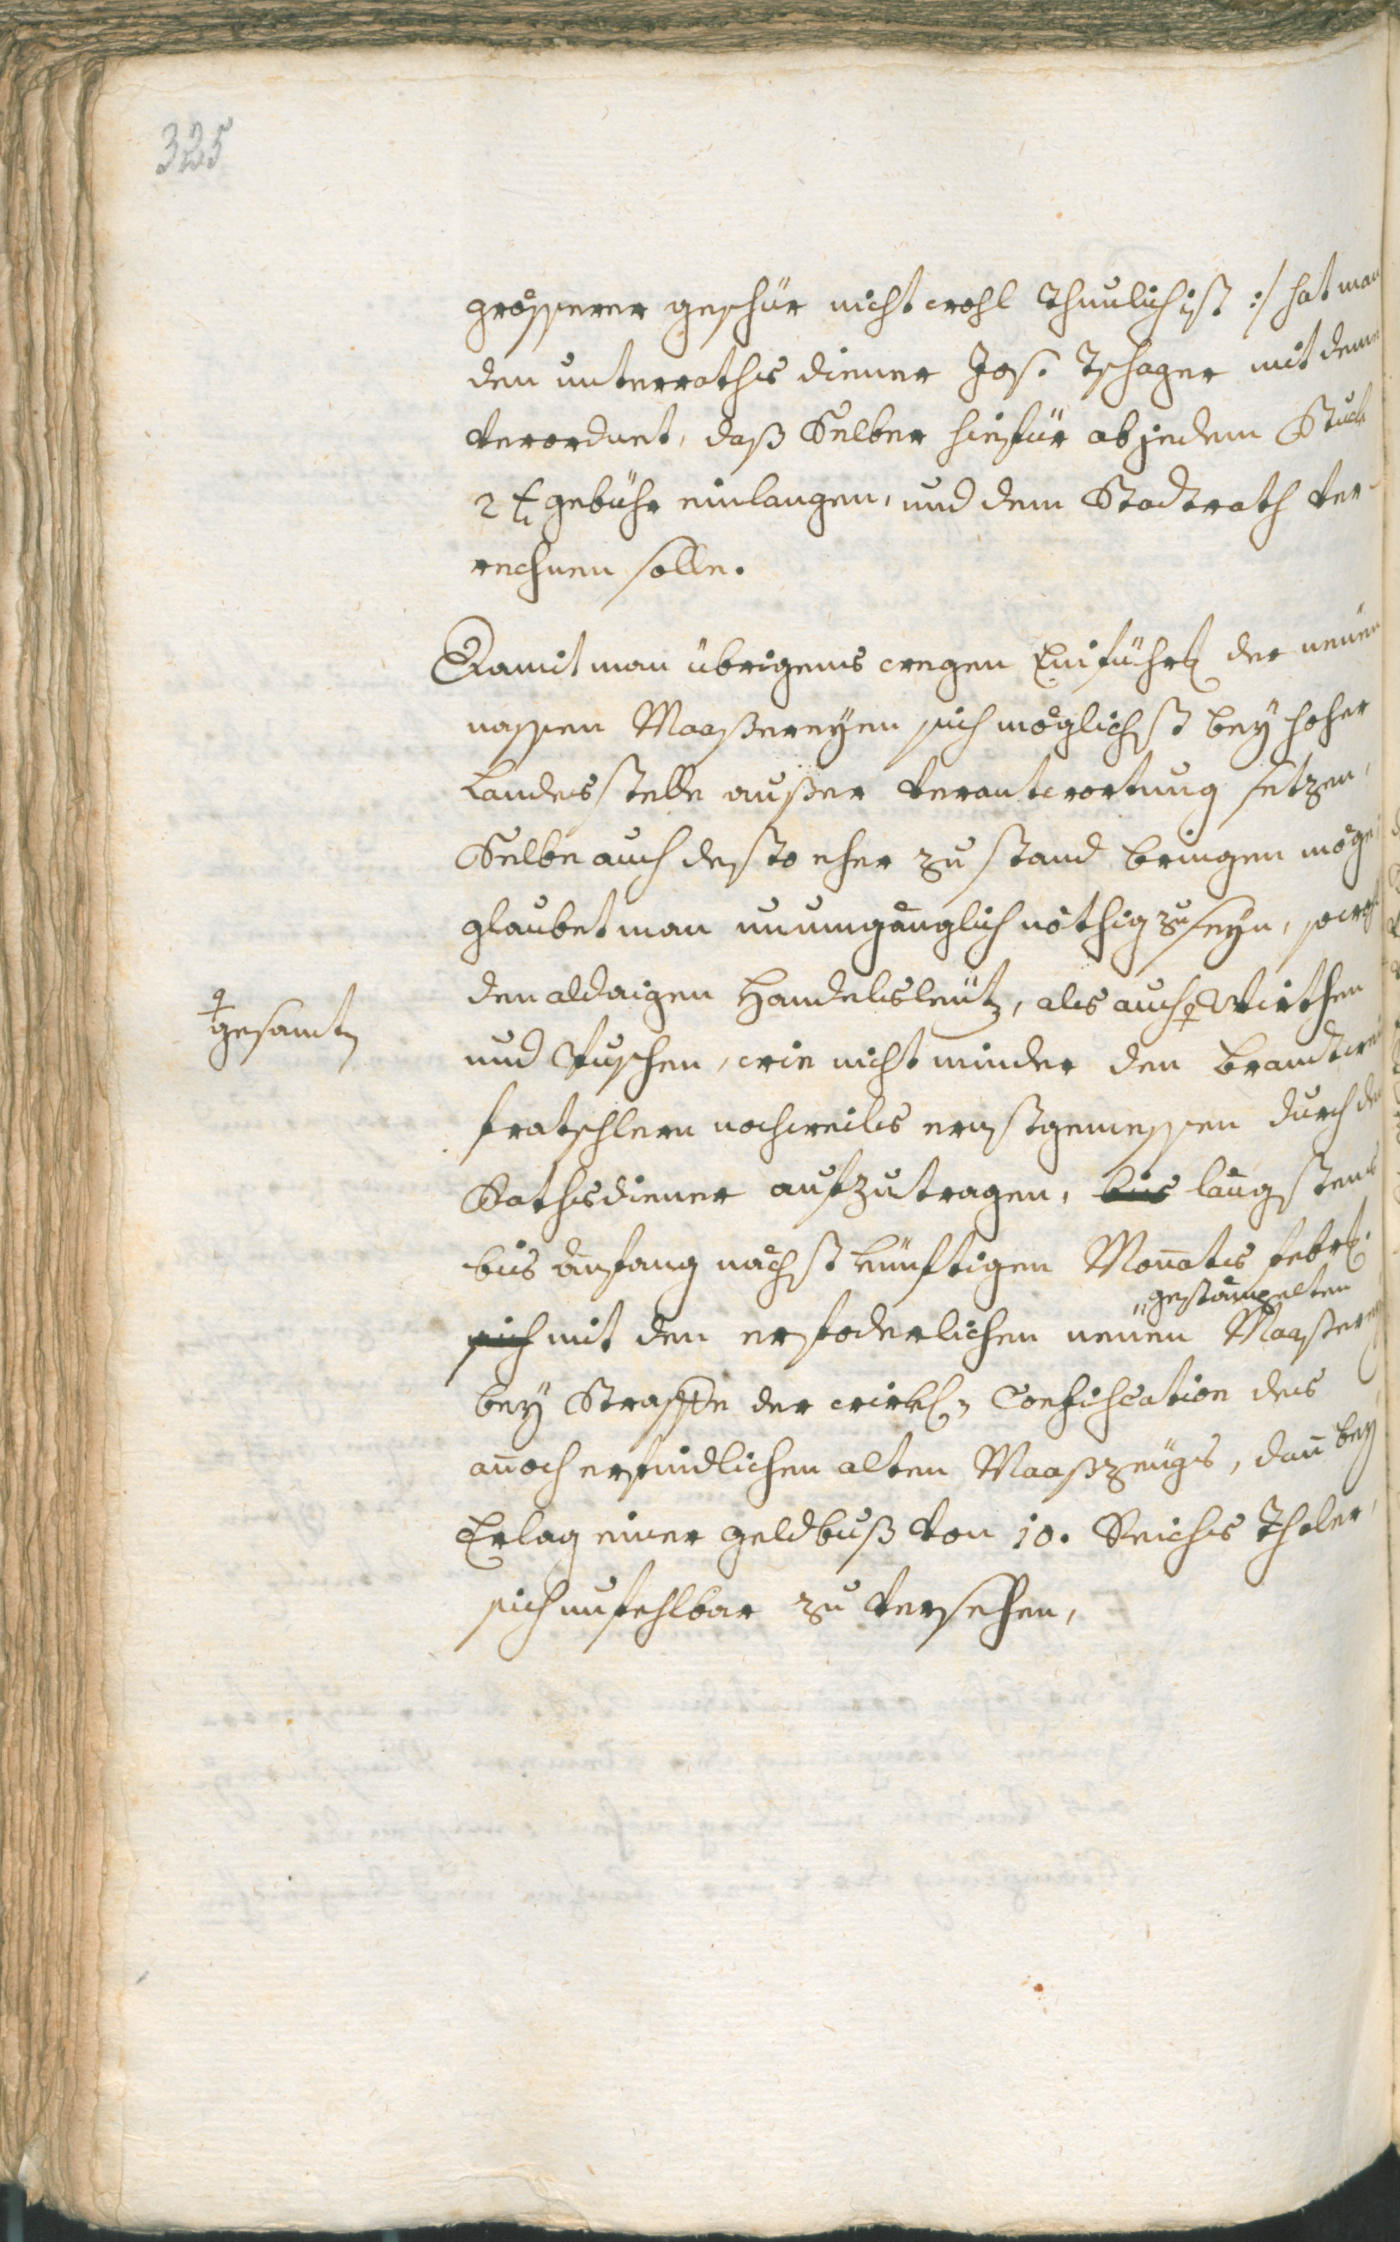 325
grösserer geschür nicht wohl thunlich ist :/ hat man
den unterraths diener Jos. Tschager mit deme
verordnet, daß Selber hiefür ab jedem Stuck
2 xr gebühr einlangen, und dem Stadtrath ver-
rechnen solle.
Damit man übrigens wegen Einführ der neüen
nassen Maaßereyen sich möglichst bey hoher
Landesstelle außer Verantwortung setzen,
Selbe auch desto eher zu stand bringen möge
glaubet man unumgänglich nöthig zu seyn, sowohl
den aldaigen Handelsleüt, als auch Wirthen
gesamt
und Puschen, wie nicht minder den Brandtwei
fratschlern nochweils ernstgemessen durch den
Rathsdiener aufzutragen, bis längstens
bis Anfang nächst künftigen Monats Febr.
gestämpelten
sich mit den erfoderlichen neüen Maaßerey
bey Straffe der wirkl. Confiscation des
annoch erfindlichen alten Maaßzeügs, dann bey
Erlag einer geldbuß von 10. Reichs Thaler,
sich unfehlbar zu versehen,